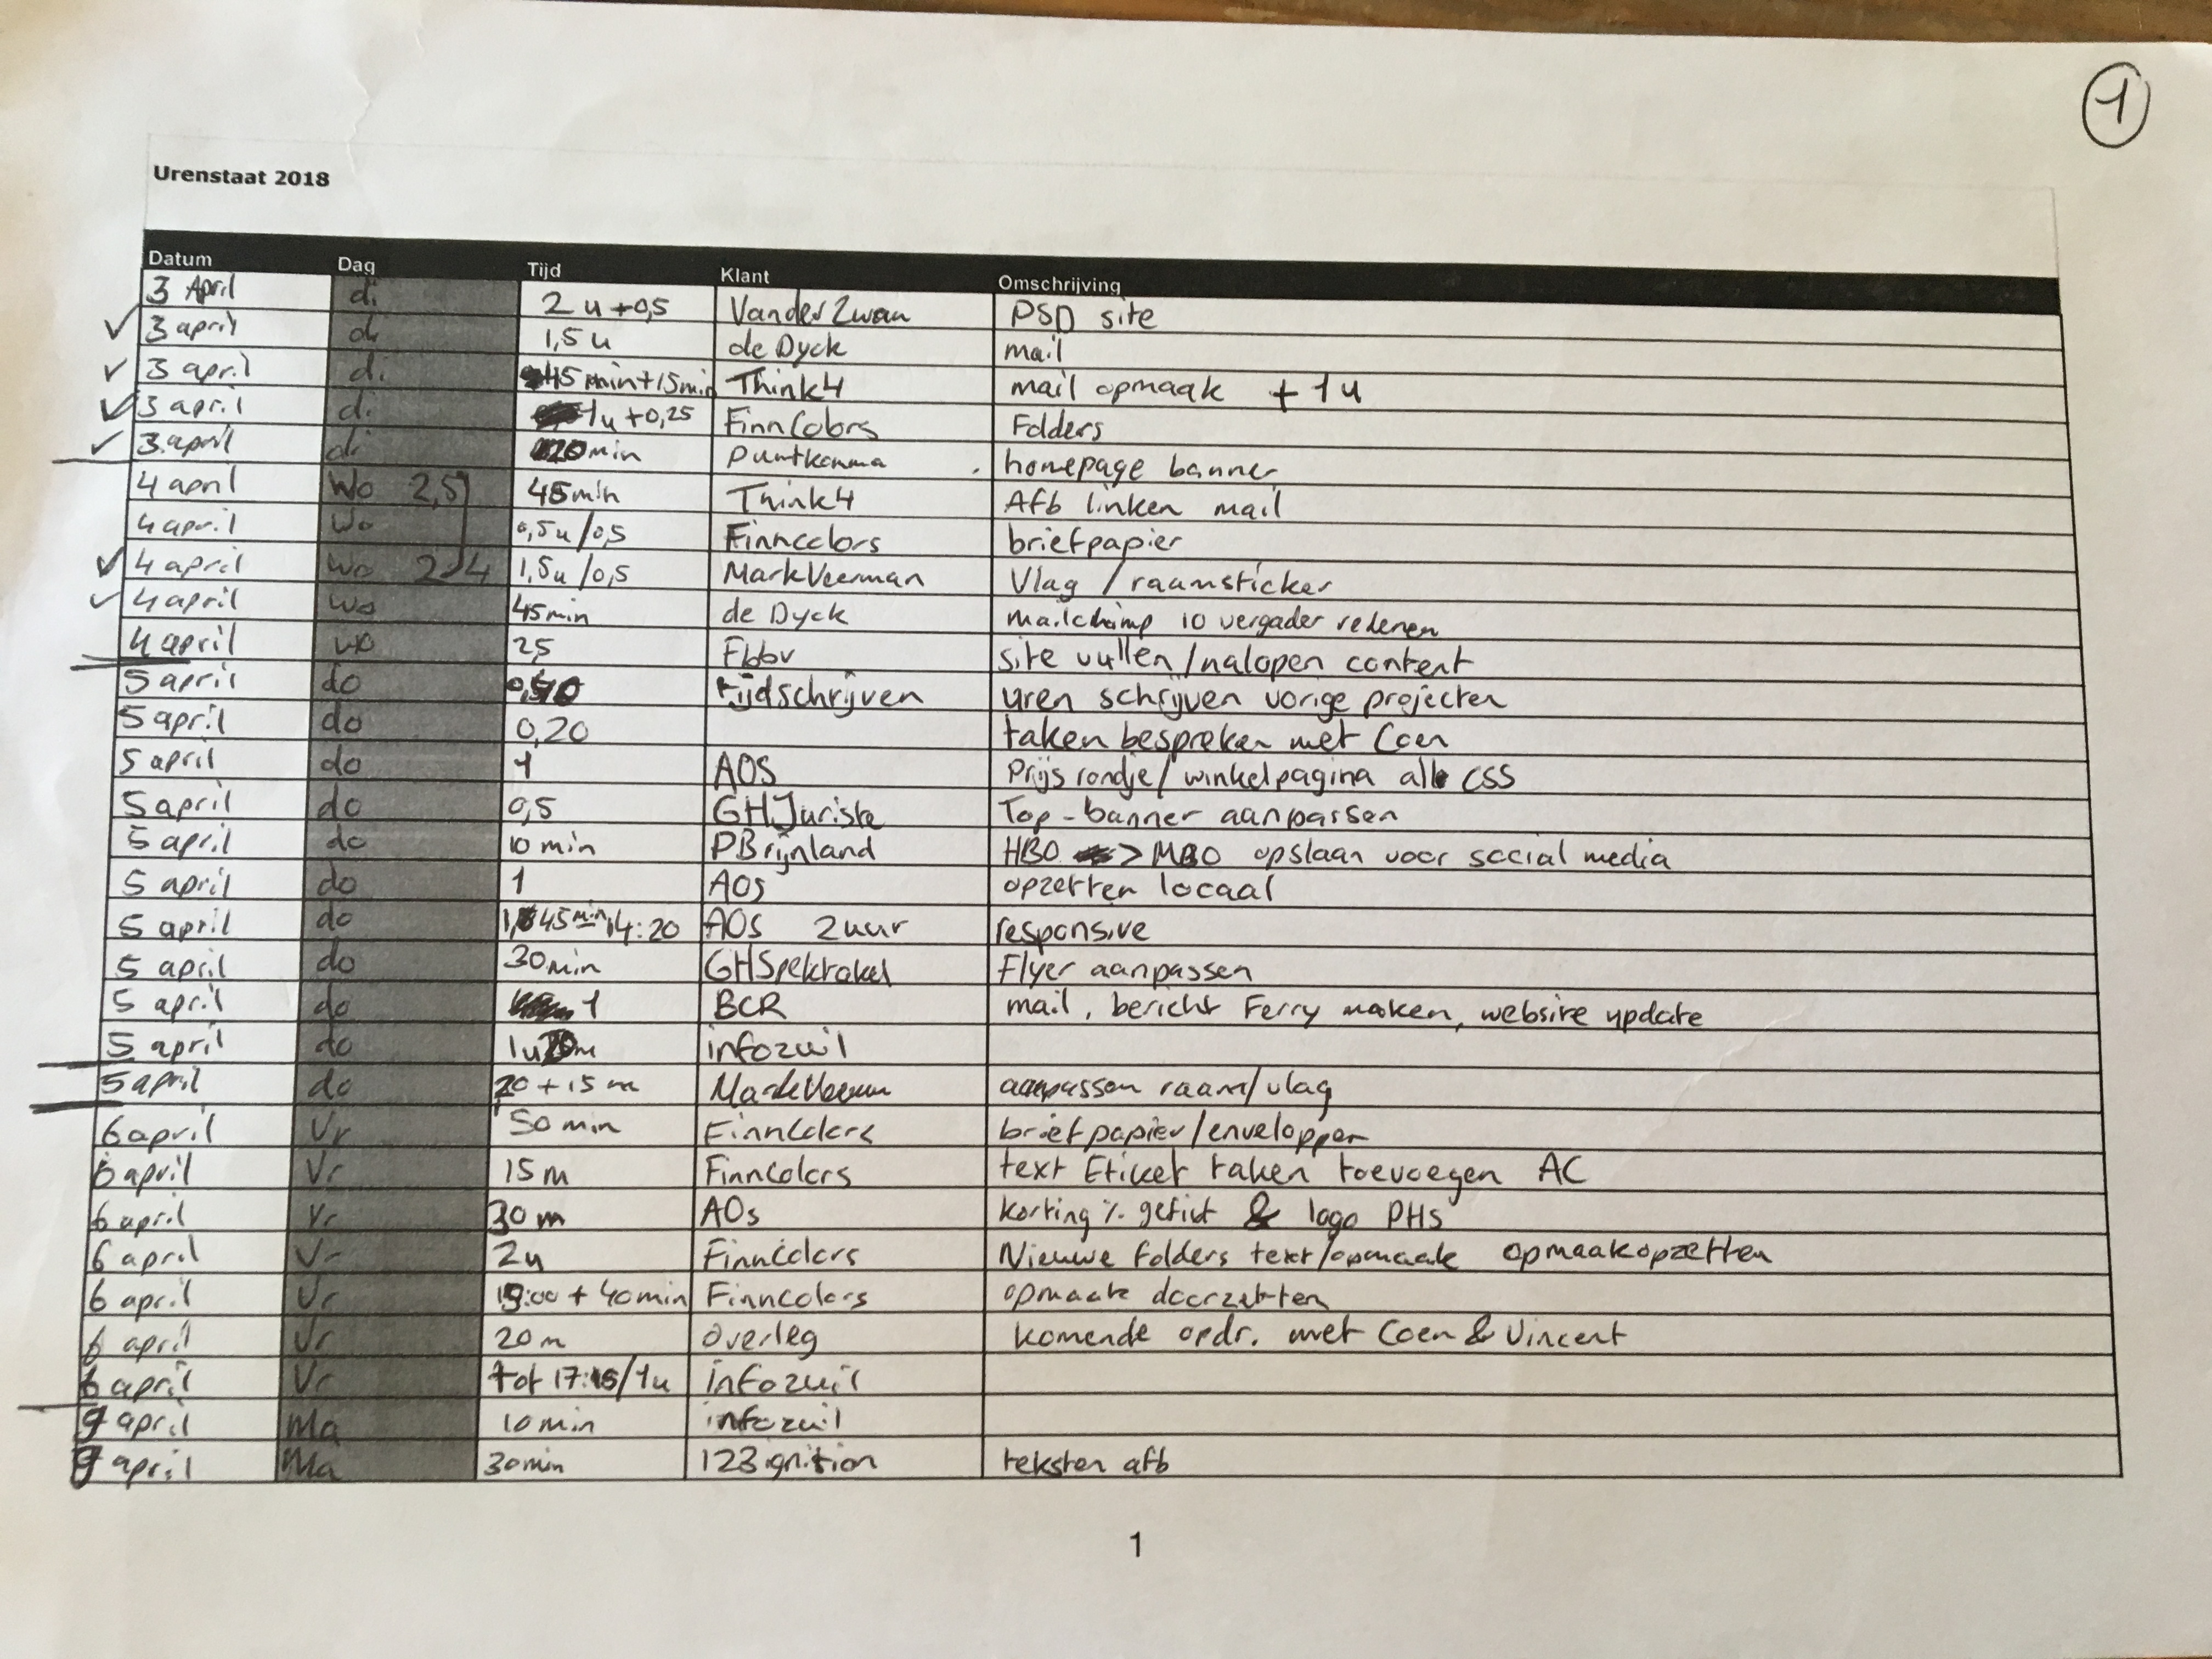 1
Urenstaat 2018
Datum Dag Tijd Klant Omschrijving
3 April di 2 u +0,5 VanderZwan PSD site
3 april di 1,5 u de Dyck mail
3 april di 45 min+15min Think4 mail opmaak + 1 u
3 april di 1u +0,25 FinnColors Folders
3 april di 20 min puntkomma homepage banner
4 april Wo 2,5 45min Think4 Afb linken mail
4 april Wo 0,5u/0,5 Finncolors briefpapier
4 april Wo 2 4 1,5u/0,5 MarkVeerman Vlag / raamsticker
4 april wo 45min de Dyck mailchimp 10 vergader redenen
4 april wo 2,5 Fbbv site vullen/nalopen content
5 april do tijdschrijven uren schrijven vorige projecten
5 april do 0,20 taken bespreken met Coen
5 april do 1 AOS Prijs rondje/ winkelpagina all CSS
5 april do 0,5 GHJuriste Top-banner aanpassen
5 april do 10 min PBrijnland HBO > MBO opslaan voor social media
5 april do 1 AOs opzetten locaal
5 april do 45min 14:20 AOs 2uur responsive
5 april do 30min GHSpektakel Flyer aanpassen
5 april do 1 BCR mail, bericht Ferry maken, website update
5 april do 1u infozuil
5 april do 20 + 15 m MarkVeerman aanpassen raam/vlag
6 april Vr 50 min FinnColors briefpapier/enveloppen
6 april Vr 15 m FinnColors text Etiket taken toevoegen AC
6 april Vr 30 m AOs korting % gefixt & logo PHs
6 april Vr 2u FinnColors Nieuwe folders text/opmaak opmaakopzetten
6 april Vr + 40min Finncolors opmaak doorzetten
6 april Vr 20 m overleg komende opdr. met Coen & Vincent
6 april Vr tot 17:15/1u infozuil
9 april Ma 10 min infozuil
9 april Ma 30min 123ignition teksten afb
1